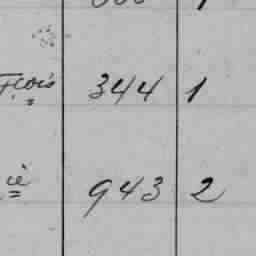 Fçois 344 1
ié 943 2